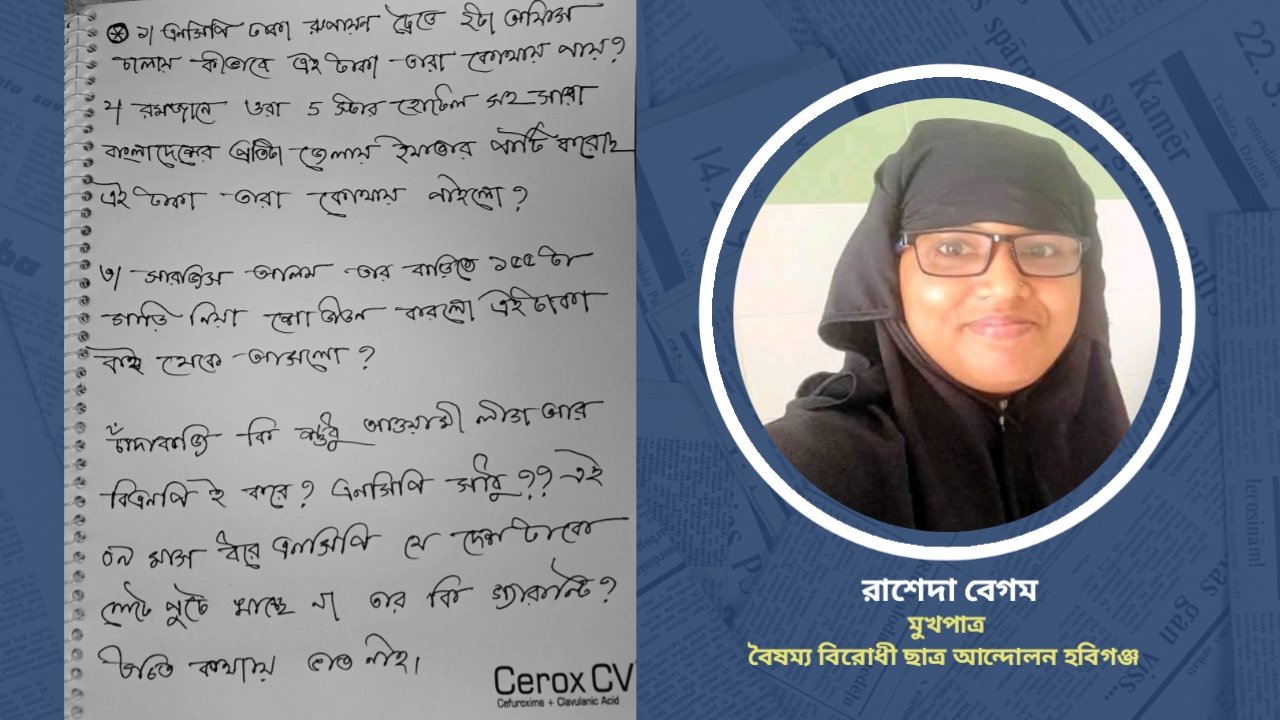 ১। এনসিপি ঢাকা রূপায়ন ট্রেডে ২টা অফিস
চালায় কীভাবে এই টাকা তারা কোথায় পায়?
২। রমজানে ওরা 5 স্টার হোটেল সহ সারা
বাংলাদেশের প্রতিটা জেলায় ইফতার পার্টি করেছে
এই টাকা তারা কোথায় পাইলো?
৩। সারজিস আলম তার বাড়িতে ১৫৫ টা
গাড়ি নিয়া শো ডাউন করলো এই টাকা
কই থেকে আসলো?
চাঁদাবাজি কি শুধু আওয়ামী লীগ আর
বিএনপি ই করে? এনসিপি সাধু?? এই
০৯ মাস ধরে এনসিপি যে দেশটাকে
লুটে পুটে খাচ্ছে না তার কি গ্যারান্টি?
উচিত কথায় ভাত নাই।
Cerox CV
Cefuroxime + Clavulanic Acid
রাশেদা বেগম
মুখপাত্র
বৈষম্য বিরোধী ছাত্র আন্দোলন হবিগঞ্জ